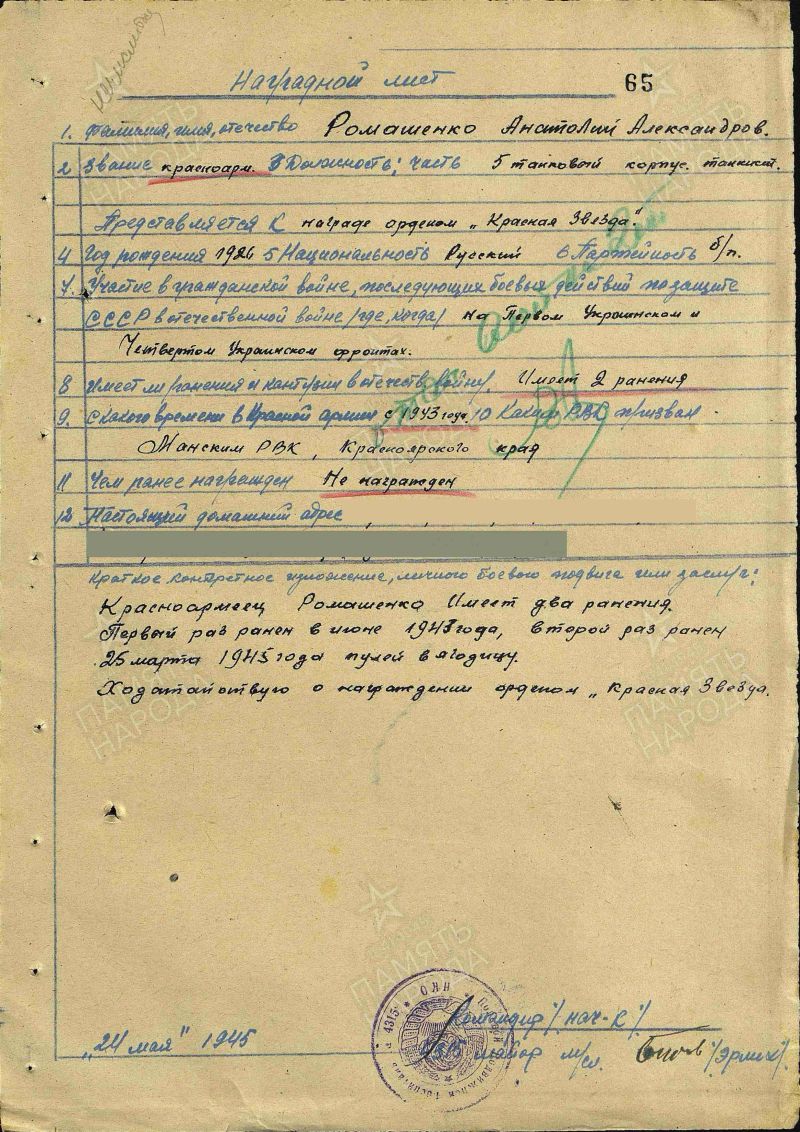 Наградной лист
65
1. Фамилия, имя, отчество Ромашенко Анатолий Александров.
2 Звание красноарм. 3 Должность; часть 5 танковый корпус. танкист.
Представляется к награде орденом „Красная Звезда".
4 Год рождения 1926 5 Национальность Русский 6 Партейность б/п.
7. Участие в гражданской войне, последующих боевых действий по защите
СССР в отечественной войне /где, когда/ на Первом Украинском и
Четвертом Украинском фронтах.
8 Имеет ли ранения и контузии в отечеств. войну. Имеет 2 ранения
9. С какого времени в Красной армии с 1943 года. 10 Каким РВК призван.
Манским РВК, Красноярского края
11 Чем ранее награжден Не награжден
12 Настоящий домашний адрес
Краткое, конкретное изложение, личного боевого подвига или заслуг:
Красноармеец Ромашенко Имеет два ранения.
Первый раз ранен в июне 1943 года, второй раз ранен
25 марта 1945 года пулей в ягодицу.
Ходатайствую о награждении орденом „Красная Звезда.
Командир /нач-к/
„24 мая" 1945
майор м/сл.
ПАМЯТЬ НАРОДА